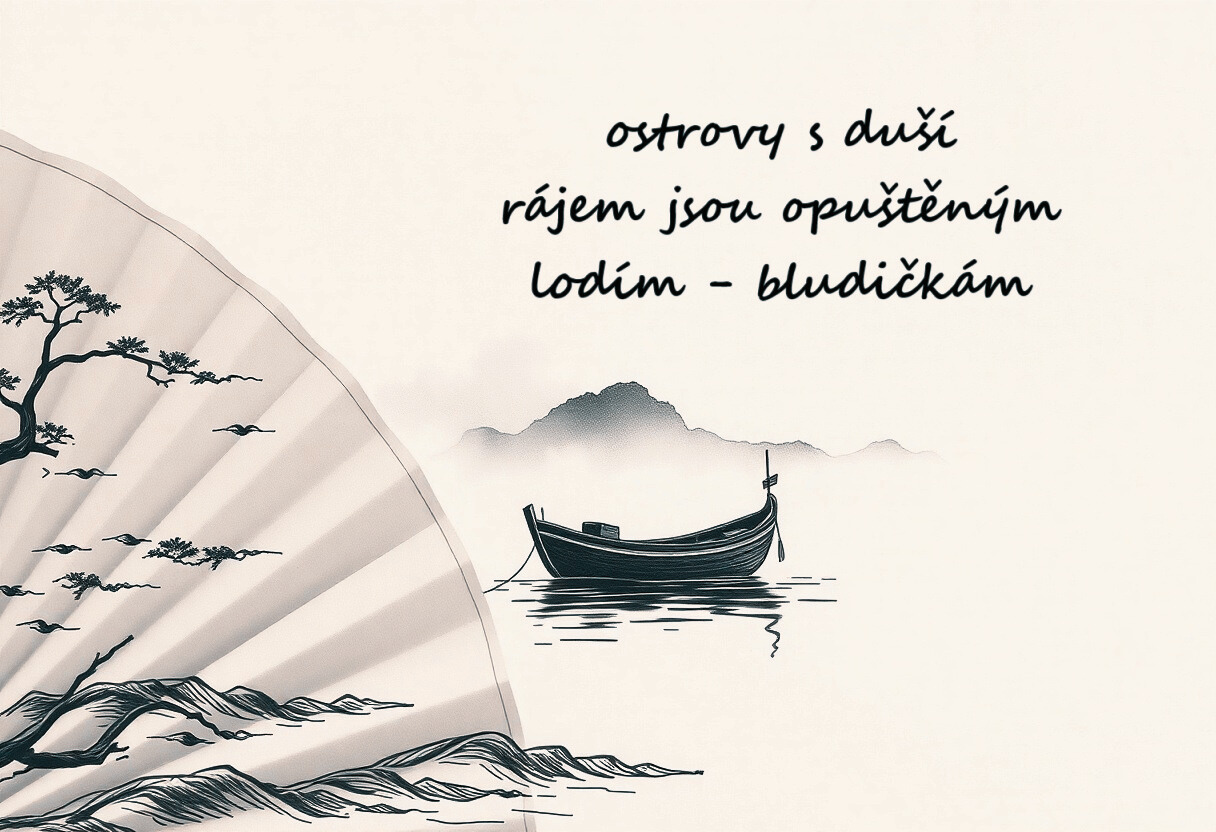 ostrovy s duší
rájem jsou opuštěným
lodím - bludičkám